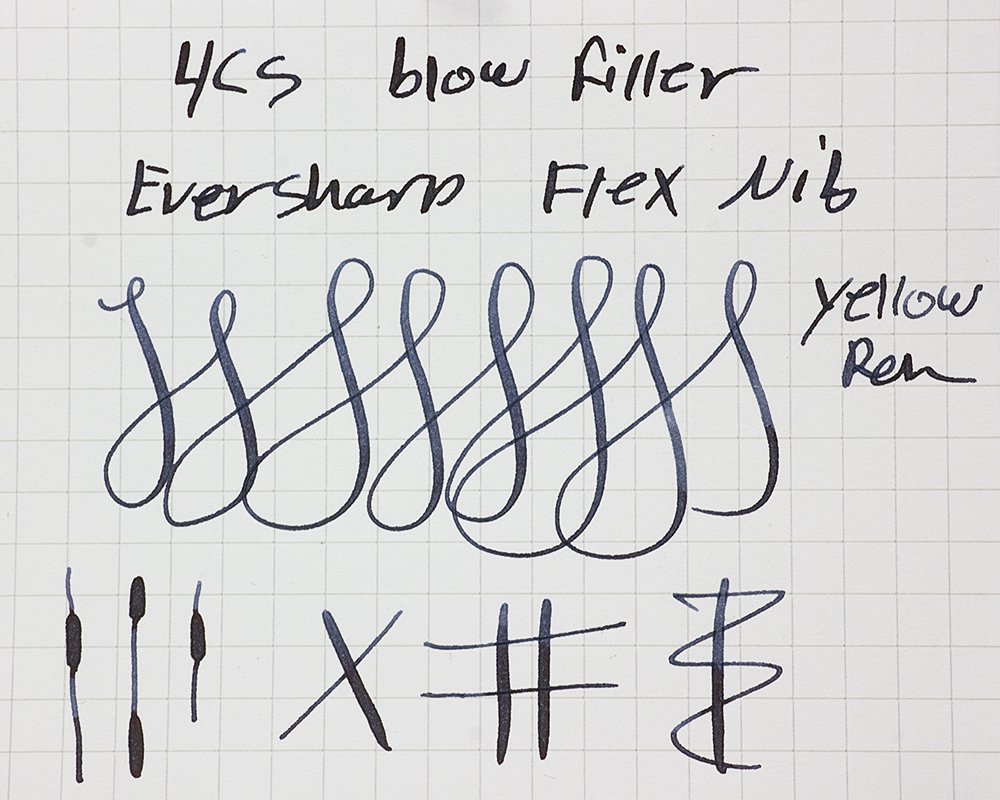 45 blow filler
Eversharp Flex Nib
Yellow
Pen